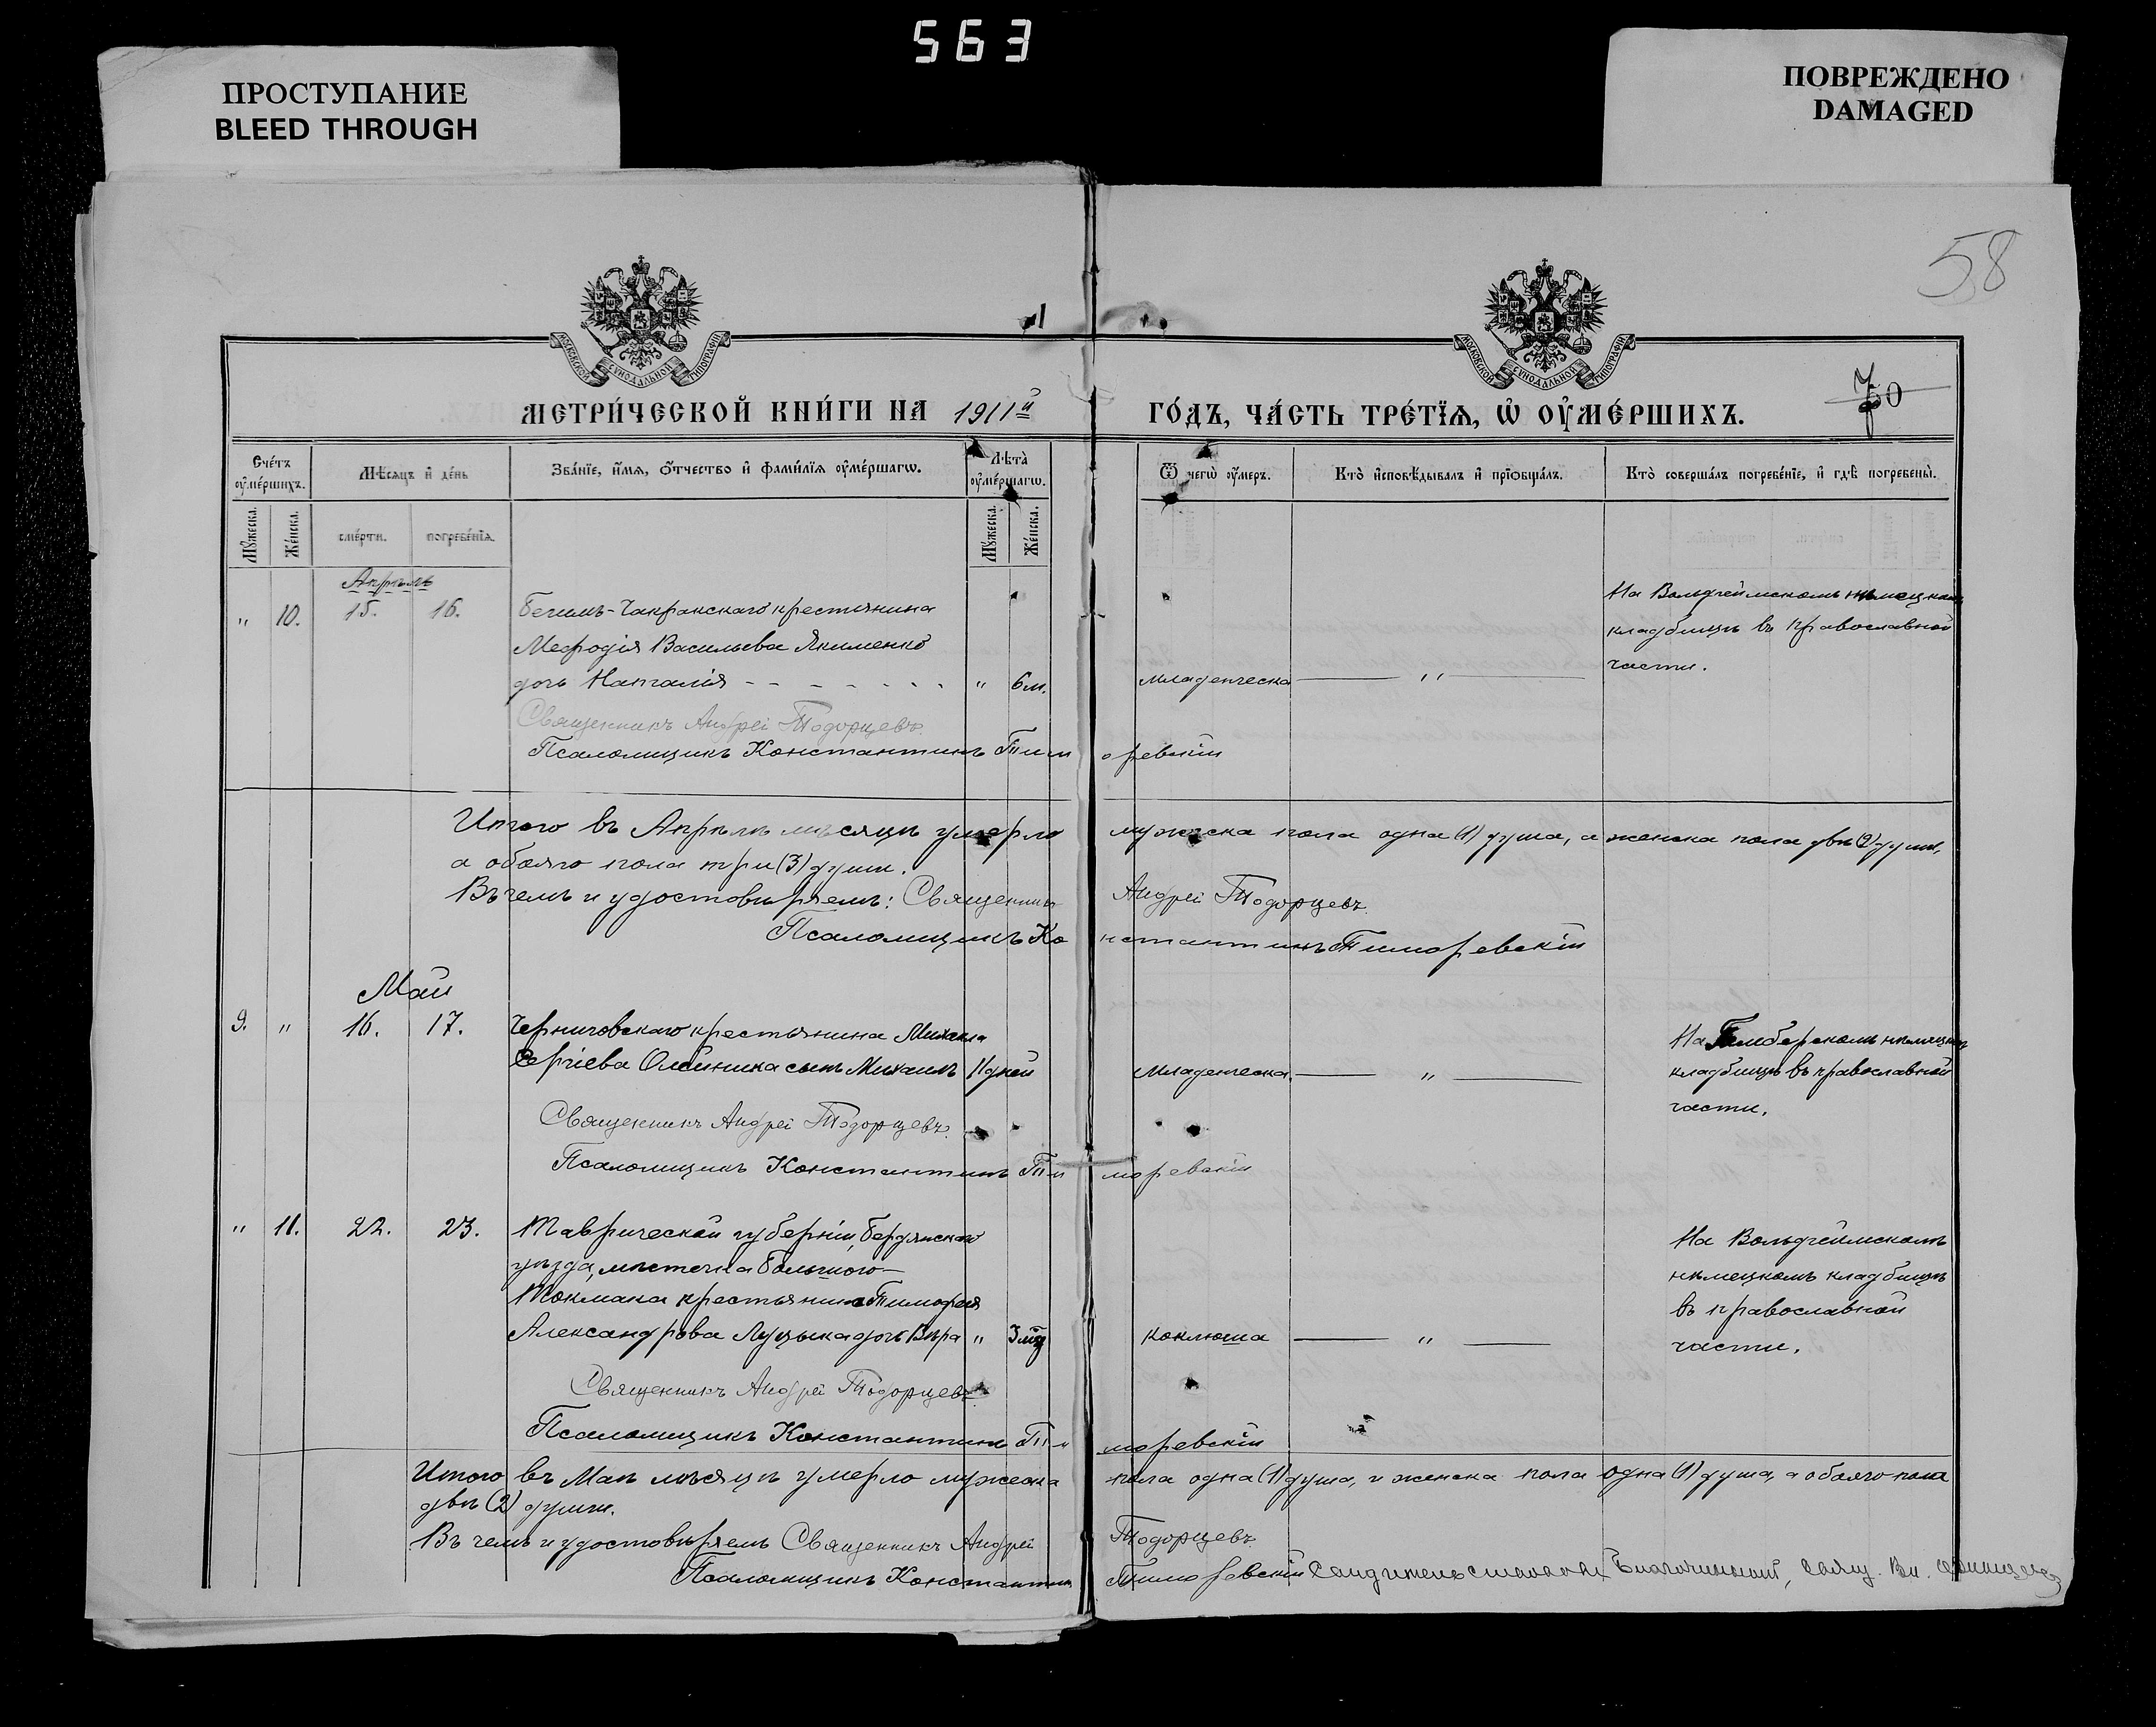 563
ПРОСТУПАНИЕ
BLEED THROUGH
ПОВРЕЖДЕНО
DAMAGED
58
МОСКОВСКОЙ СУНОДАЛЬНОЙ ТИПОГРАФІИ
МОСКОВСКОЙ СУНОДАЛЬНОЙ ТИПОГРАФІИ
70
МЕТРИ́ЧЕСКОЙ КНИ́ГИ НА 1911й ГО́ДЪ, ЧА́СТЬ ТРЕ́ТЇѦ, Ѡ҆ ОУ҆МЕ́РШИХЪ.
Сче́тъ оу҆ме́ршихъ.
Мѣ́сяцъ и҆ де́нь
Зва́нїе, и҆́мя, ѻ҆́тчество и҆ фами́лїя оу҆ме́ршагѡ.
Лѣта̀ оу҆ме́ршагѡ.
Ѿ чегѡ̀ оу҆́меръ.
Кто̀ и҆сповѣ́дывалъ и҆ прїѻбща́лъ.
Кто̀ соверша́лъ погребе́нїе, и҆ гдѣ̀ погребены̀.
Мꙋ́жеска.
Же́нска.
сме́рти.
погребе́нїя.
Мꙋ́жеска.
Же́нска.
Апрѣль
" 10. 15. 16. Бегимъ-Чакракскаго крестьянина
Меѳодія Васильева Якименко
дочь Наталія - - - - - - - " 6 м. младенческа — " —
На Вольдгеймскомъ нѣмецкомъ
кладбищѣ въ православной
части.
Священникъ Андрей Тодорцевъ
Псаломщикъ Константинъ Тиморевскій
Итого въ Апрѣлѣ мѣсяцѣ умерло мужеска пола одна (1) душа, а женска пола двѣ (2) души,
а обоего пола три (3) души.
Въ чемъ и удостовѣряемъ: Священникъ Андрей Тодорцевъ.
Псаломщикъ Константинъ Тиморевскій
Май
9. " 16. 17. Черниговскаго крестьянина Михаила
Сергіева Олейника сынъ Михаилъ 11 дней младенческа. — " —
На нѣмецкомъ
кладбищѣ въ православной
части.
Священникъ Андрей Тодорцевъ.
Псаломщикъ Константинъ Тиморевскій
" 11. 22. 23. Таврической губерніи, Бердянскаго
уѣзда, мѣстечка Большого-
Токмака крестьянина Тимофея
Александрова Луцыка дочь Вѣра " 3 мц коклюша — " —
На Вольдгеймскомъ
нѣмецкомъ кладбищѣ
въ православной
части.
Священникъ Андрей Тодорцевъ.
Псаломщикъ Константинъ Тиморевскій
Итого въ Маѣ мѣсяцѣ умерло мужеска пола одна (1) душа, и женска пола одна (1) душа, а обоего пола
двѣ (2) души.
Въ чемъ и удостовѣряемъ Священникъ Андрей Тодорцевъ.
Псаломщикъ Константинъ Тиморевскій Благочинный, Свящ. Вл.